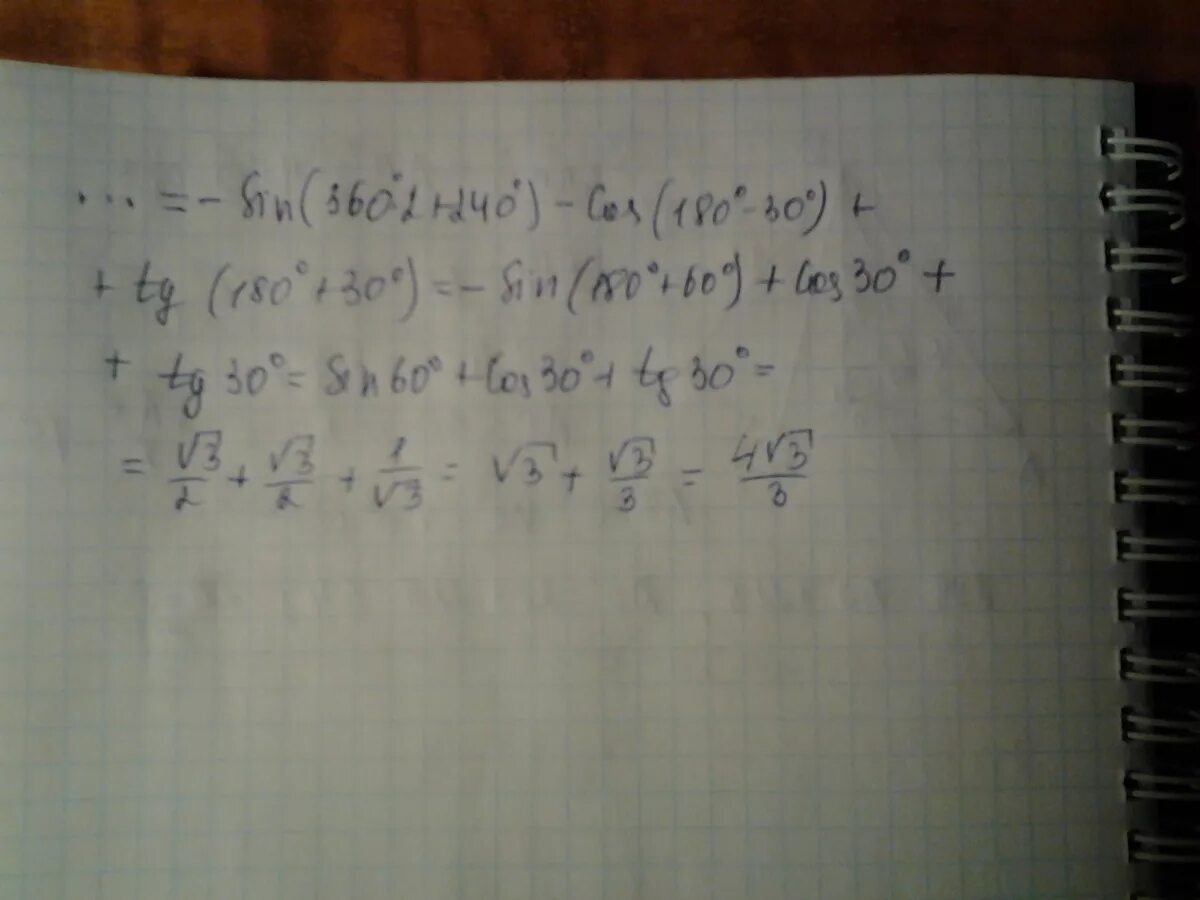 ... = - Sin(360°·2+240°) - Cos(180°-30°) +
+ tg (180°+30°) = - Sin(180°+60°) + Cos30° +
+ tg 30° = Sin60° + Cos30° + tg 30° =
= √3/2 + √3/2 + 1/√3 = √3 + √3/3 = 4√3/3